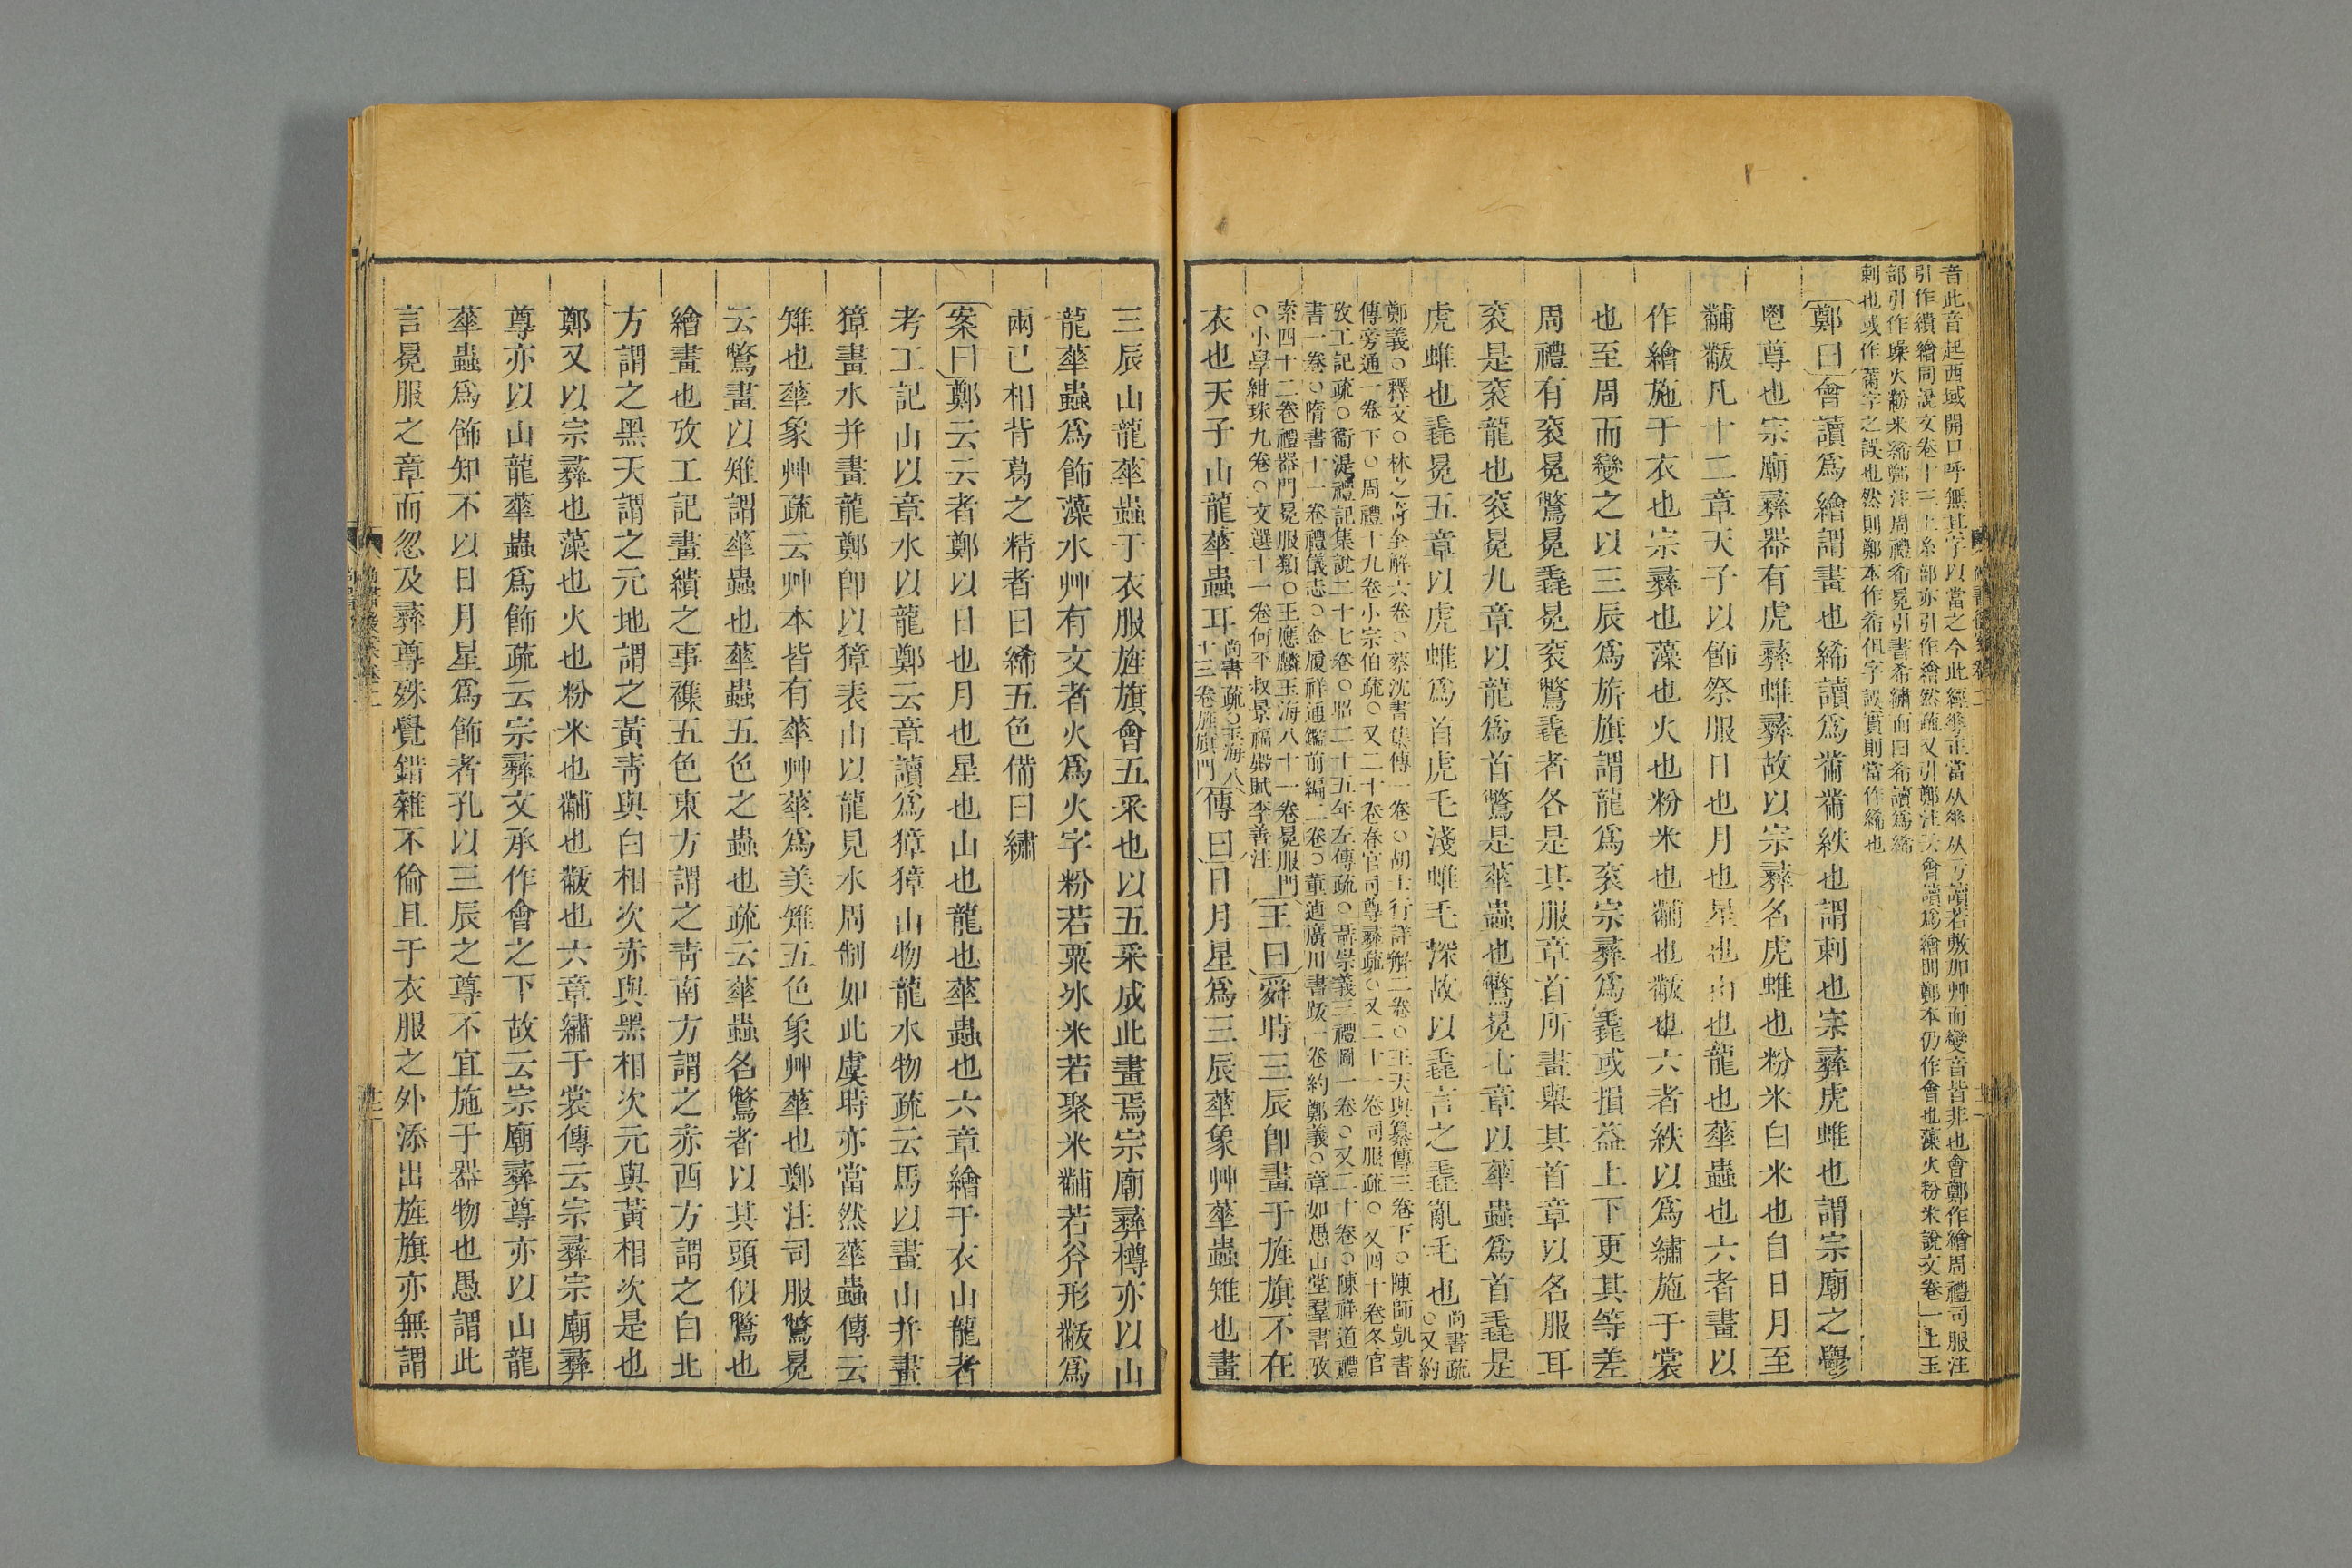 音此音起西域開口呼無其字以當之今此經華正當从華从亏讀若敷加艸而變音皆非也會鄭作繪周禮司服注
引作繢繪同說文卷十三上糸部亦引作繪然疏又引鄭注云會讀爲繪則鄭本仍作會也藻火粉米說文卷一上玉
部引作璪火黺米絺鄭注周禮希冕引書希繡而曰希讀爲絺
刺也或作黹字之誤也然則鄭本作希但字誤實則當作絺也
鄭曰會讀爲繪謂畫也絺讀爲黹黹紩也謂刺也宗彝虎蜼也謂宗廟之鬱
鬯尊也宗廟彝器有虎彝蜼彝故以宗彝名虎蜼也粉米白米也自日月至
黼黻凡十二章天子以飾祭服日也月也星也山也龍也華蟲也六者畫以
作繪施于衣也宗彝也藻也火也粉米也黼也黻也六者紩以爲繡施于裳
也至周而變之以三辰爲旂旗謂龍爲袞宗彝爲毳或損益上下更其等差
周禮有袞冕鷩冕毳冕袞鷩毳者各是其服章首所畫舉其首章以名服耳
袞是袞龍也袞冕九章以龍爲首鷩是華蟲也鷩冕七章以華蟲爲首毳是
虎蜼也毳冕五章以虎蜼爲首虎毛淺蜼毛深故以毳言之毳亂毛也尚書疏○又約
鄭義○釋文○林之奇全解六卷○蔡沈書集傳一卷○胡士行詳解二卷○王天與纂傳三卷下○陳師凱書
傳旁通一卷下○周禮十九卷小宗伯疏○又二十卷春官司尊彞疏○又二十一卷司服疏○又四十卷冬官
攷工記疏○衞湜禮記集說二十七卷○昭二十五年左傳疏○聶崇義三禮圖一卷○又二十卷○陳祥道禮
書一卷○隋書十一卷禮儀志○金履祥通鑑前編二卷○董逌廣川書跋一卷約鄭義○章如愚山堂羣書攷
索四十二卷禮器門冕服類○王應麟玉海八十一卷冕服門
○小學紺珠九卷○文選十一卷何平叔景福殿賦李善注
王曰舜時三辰卽畫于旌旗不在
衣也天子山龍華蟲耳尚書疏○玉海八十三卷旌旗門傳曰日月星爲三辰華象艸華蟲雉也畫
三辰山龍華蟲于衣服旌旗會五采也以五采成此畫焉宗廟彝樽亦以山
龍華蟲爲飾藻水艸有文者火爲火字粉若粟冰米若聚米黼若斧形黻爲
兩已相背葛之精者曰絺五色備曰繡
案曰鄭云云者鄭以日也月也星也山也龍也華蟲也六章繪于衣山龍者
考工記山以章水以龍鄭云章讀爲獐獐山物龍水物疏云馬以畫山并畫
獐畫水并畫龍鄭卽以獐表山以龍見水周制如此虞時亦當然華蟲傳云
雉也華象艸疏云艸本皆有華艸華爲美雉五色象艸華也鄭注司服鷩冕
云鷩畫以雉謂華蟲也華蟲五色之蟲也疏云華蟲名鷩者以其頭似鷩也
繪畫也攷工記畫繢之事襍五色東方謂之青南方謂之赤西方謂之白北
方謂之黑天謂之元地謂之黃青與白相次赤與黑相次元與黃相次是也
鄭又以宗彝也藻也火也粉米也黼也黻也六章繡于裳傳云宗彝宗廟彝
尊亦以山龍華蟲爲飾疏云宗彝文承作會之下故云宗廟彝尊亦以山龍
華蟲爲飾知不以日月星爲飾者孔以三辰之尊不宜施于器物也愚謂此
言冕服之章而忽及彝尊殊覺錯雜不倫且于衣服之外添出旌旗亦無謂